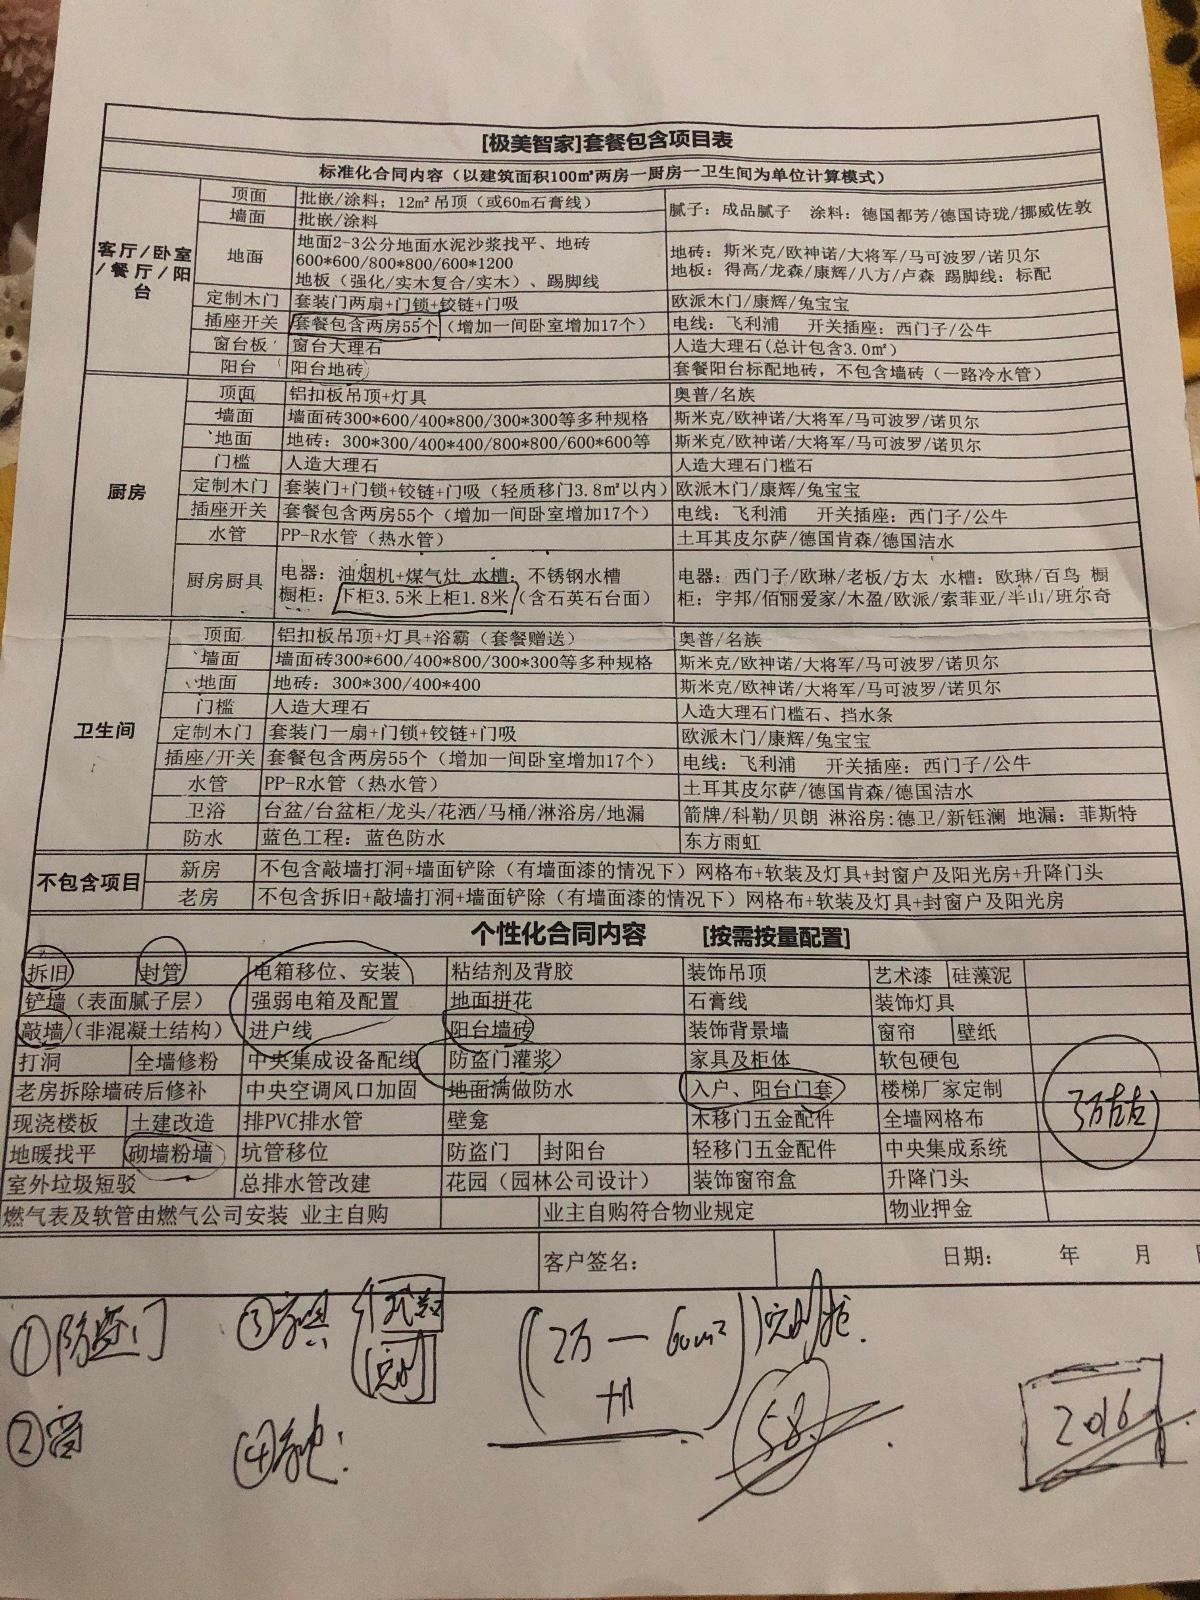 [极美智家]套餐包含项目表
标准化合同内容（以建筑面积100㎡两房一厨房一卫生间为单位计算模式）
客厅/卧室/餐厅/阳台
顶面 批嵌/涂料；12㎡吊顶（或60m石膏线） 腻子：成品腻子 涂料：德国都芳/德国诗珑/挪威佐敦
墙面 批嵌/涂料
地面 地面2-3公分地面水泥沙浆找平、地砖
600*600/800*800/600*1200 地砖：斯米克/欧神诺/大将军/马可波罗/诺贝尔
地板（强化/实木复合/实木）、踢脚线 地板：得高/龙森/康辉/八方/卢森 踢脚线：标配
定制木门 套装门两扇+门锁+铰链+门吸 欧派木门/康辉/兔宝宝
插座开关 套餐包含两房55个（增加一间卧室增加17个） 电线：飞利浦 开关插座：西门子/公牛
窗台板 窗台大理石 人造大理石(总计包含3.0㎡)
阳台 阳台地砖 套餐阳台标配地砖，不包含墙砖（一路冷水管）
厨房
顶面 铝扣板吊顶+灯具 奥普/名族
墙面 墙面砖300*600/400*800/300*300等多种规格 斯米克/欧神诺/大将军/马可波罗/诺贝尔
地面 地砖：300*300/400*400/800*800/600*600等 斯米克/欧神诺/大将军/马可波罗/诺贝尔
门槛 人造大理石 人造大理石门槛石
定制木门 套装门+门锁+铰链+门吸（轻质移门3.8㎡以内） 欧派木门/康辉/兔宝宝
插座开关 套餐包含两房55个（增加一间卧室增加17个） 电线：飞利浦 开关插座：西门子/公牛
水管 PP-R水管（热水管） 土耳其皮尔萨/德国肯森/德国洁水
厨房厨具 电器：油烟机+煤气灶 水槽：不锈钢水槽 电器：西门子/欧琳/老板/方太 水槽：欧琳/百鸟 橱
橱柜：下柜3.5米上柜1.8米（含石英石台面） 柜：宇邦/佰丽爱家/木盈/欧派/索菲亚/半山/班尔奇
卫生间
顶面 铝扣板吊顶+灯具+浴霸（套餐赠送） 奥普/名族
墙面 墙面砖300*600/400*800/300*300等多种规格 斯米克/欧神诺/大将军/马可波罗/诺贝尔
地面 地砖：300*300/400*400 斯米克/欧神诺/大将军/马可波罗/诺贝尔
门槛 人造大理石 人造大理石门槛石、挡水条
定制木门 套装门一扇+门锁+铰链+门吸 欧派木门/康辉/兔宝宝
插座/开关 套餐包含两房55个（增加一间卧室增加17个） 电线：飞利浦 开关插座：西门子/公牛
水管 PP-R水管（热水管） 土耳其皮尔萨/德国肯森/德国洁水
卫浴 台盆/台盆柜/龙头/花洒/马桶/淋浴房/地漏 箭牌/科勒/贝朗 淋浴房:德卫/新钰澜 地漏：菲斯特
防水 蓝色工程：蓝色防水 东方雨虹
不包含项目
新房 不包含敲墙打洞+墙面铲除（有墙面漆的情况下）网格布+软装及灯具+封窗户及阳光房+升降门头
老房 不包含拆旧+敲墙打洞+墙面铲除（有墙面漆的情况下）网格布+软装及灯具+封窗户及阳光房
个性化合同内容 [按需按量配置]
拆旧 封管 电箱移位、安装 粘结剂及背胶 装饰吊顶 艺术漆 硅藻泥
铲墙（表面腻子层） 强弱电箱及配置 地面拼花 石膏线 装饰灯具
敲墙（非混凝土结构） 进户线 阳台墙砖 装饰背景墙 窗帘 壁纸
打洞 全墙修粉 中央集成设备配线 防盗门灌浆 家具及柜体 软包硬包
老房拆除墙砖后修补 中央空调风口加固 地面满做防水 入户、阳台门套 楼梯厂家定制 3万左右
现浇楼板 土建改造 排PVC排水管 壁龛 木移门五金配件 全墙网格布
地暖找平 砌墙粉墙 坑管移位 防盗门 封阳台 轻移门五金配件 中央集成系统
室外垃圾短驳 总排水管改建 花园（园林公司设计） 装饰窗帘盒 升降门头
燃气表及软管由燃气公司安装 业主自购 业主自购符合物业规定 物业押金
客户签名： 日期： 年 月 日
①防盗门 ③家具 (2万一60m²)
②窗 ④家电： 58. 2016